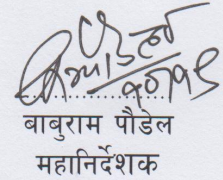 बाबुराम पौडेल
महानिर्देशक